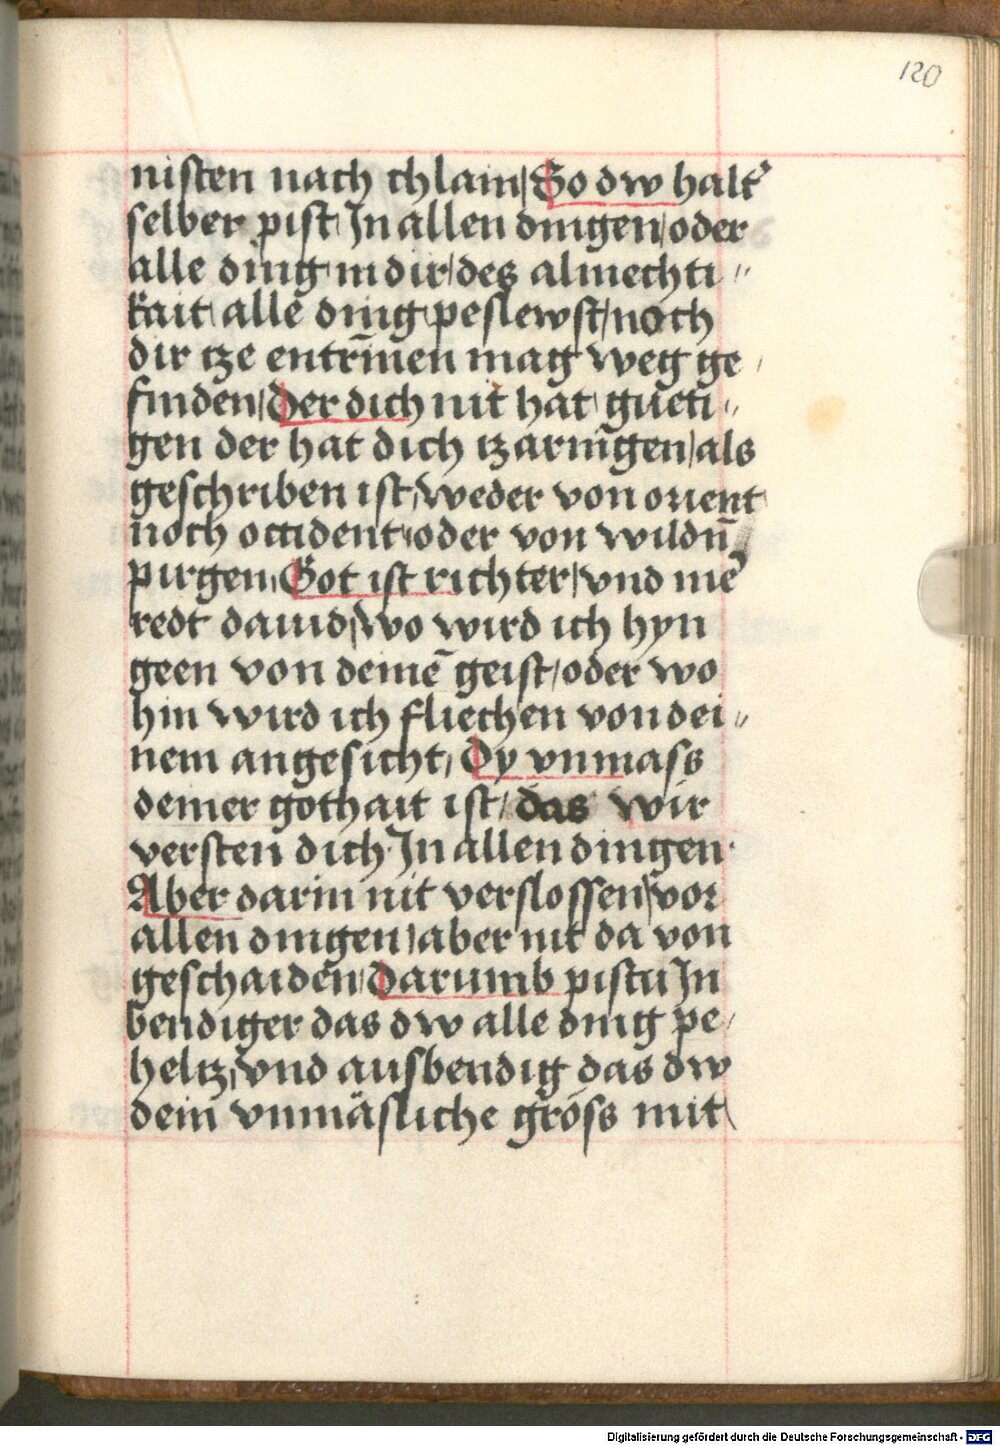 120
nisten nach chlain/ So dw halt᾽
selber pist In allen dingen/ oder
alle ding in dir/ des almechti〃
kait alle ding peslewst/ noch
dir tze entrīnen mag weg ge/
finden/ Der dich nit hat gueti〃
gen der hat dich tzarnīgen/ als
geschriben ist/ weder von orient
noch occident/ oder von wildn̄
pirgen/ Got ist richter/ vnd me᾽
redt dauid/ wo wird ich hyn
geen von deinē geist/ oder wo
hin wird ich fliechen von dei〃
nem angesicht/ Dy vnmass
deiner gothait ist/ das wir
versten dich In allen dingen
Aber darin nit verslossen/ vor
allen dingen/ aber nit da von
geschaiden/ Darumb pistu In
bendiger das dw alle ding pe/
heltz/ vnd ausbendig das dw
dein vnmäsliche gröss mit
Digitalisierung gefördert durch die Deutsche Forschungsgemeinschaft - DFG